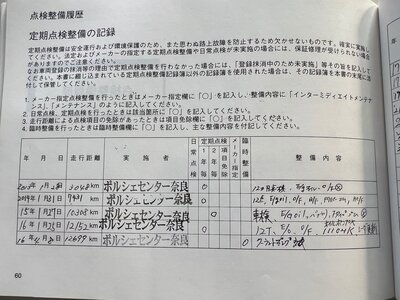 点検整備履歴
定期点検整備の記録
定期点検整備は安全運行および環境保護のため、また思わぬ路上故障を防止するため欠かせないものです。確実に実施してください。法定およびメーカーの指定する定期点検整備や日常点検が未実施の場合には、保証修理が受けられない場合がありますのでご注意ください。
なお車両登録の抹消等の理由で定期点検整備が行われなかった場合には、「登録抹消中のため未実施」等その旨を記入してください。本書に綴じ込まれている定期点検整備記録簿以外の記録簿を使用された場合は、その記録簿を本書の末尾に添付して保管してください。
1. メーカー指定点検整備を行ったときはメーカー指定欄に「〇」を記入し、整備内容に「インターミディエイトメンテナンス」、「メンテナンス」のように記入してください。
2. 日常点検、定期点検を行ったときは該当箇所に「〇」を記入してください。
3. 走行距離による点検項目の免除があったときは項目免除欄に「〇」を記入してください。
4. 臨時整備を行ったときは臨時整備欄に「〇」を記入し、整備内容を記入してください。
年 月 日 走行距離 実施者 日常点検 定期点検 1年毎 2年毎 項目免除 メーカー指定 臨時整備 整備内容
3048 km ポルシェセンター奈良 〇
2014年1月31日 7431 km ポルシェセンター奈良 〇
15年1月27日 10308 km ポルシェセンター奈良 〇 車検
16年1月25日 12,152 km ポルシェセンター奈良 〇 12T、E/O、O/F、
16年4月30日 12699 km ポルシェセンター奈良 〇
60